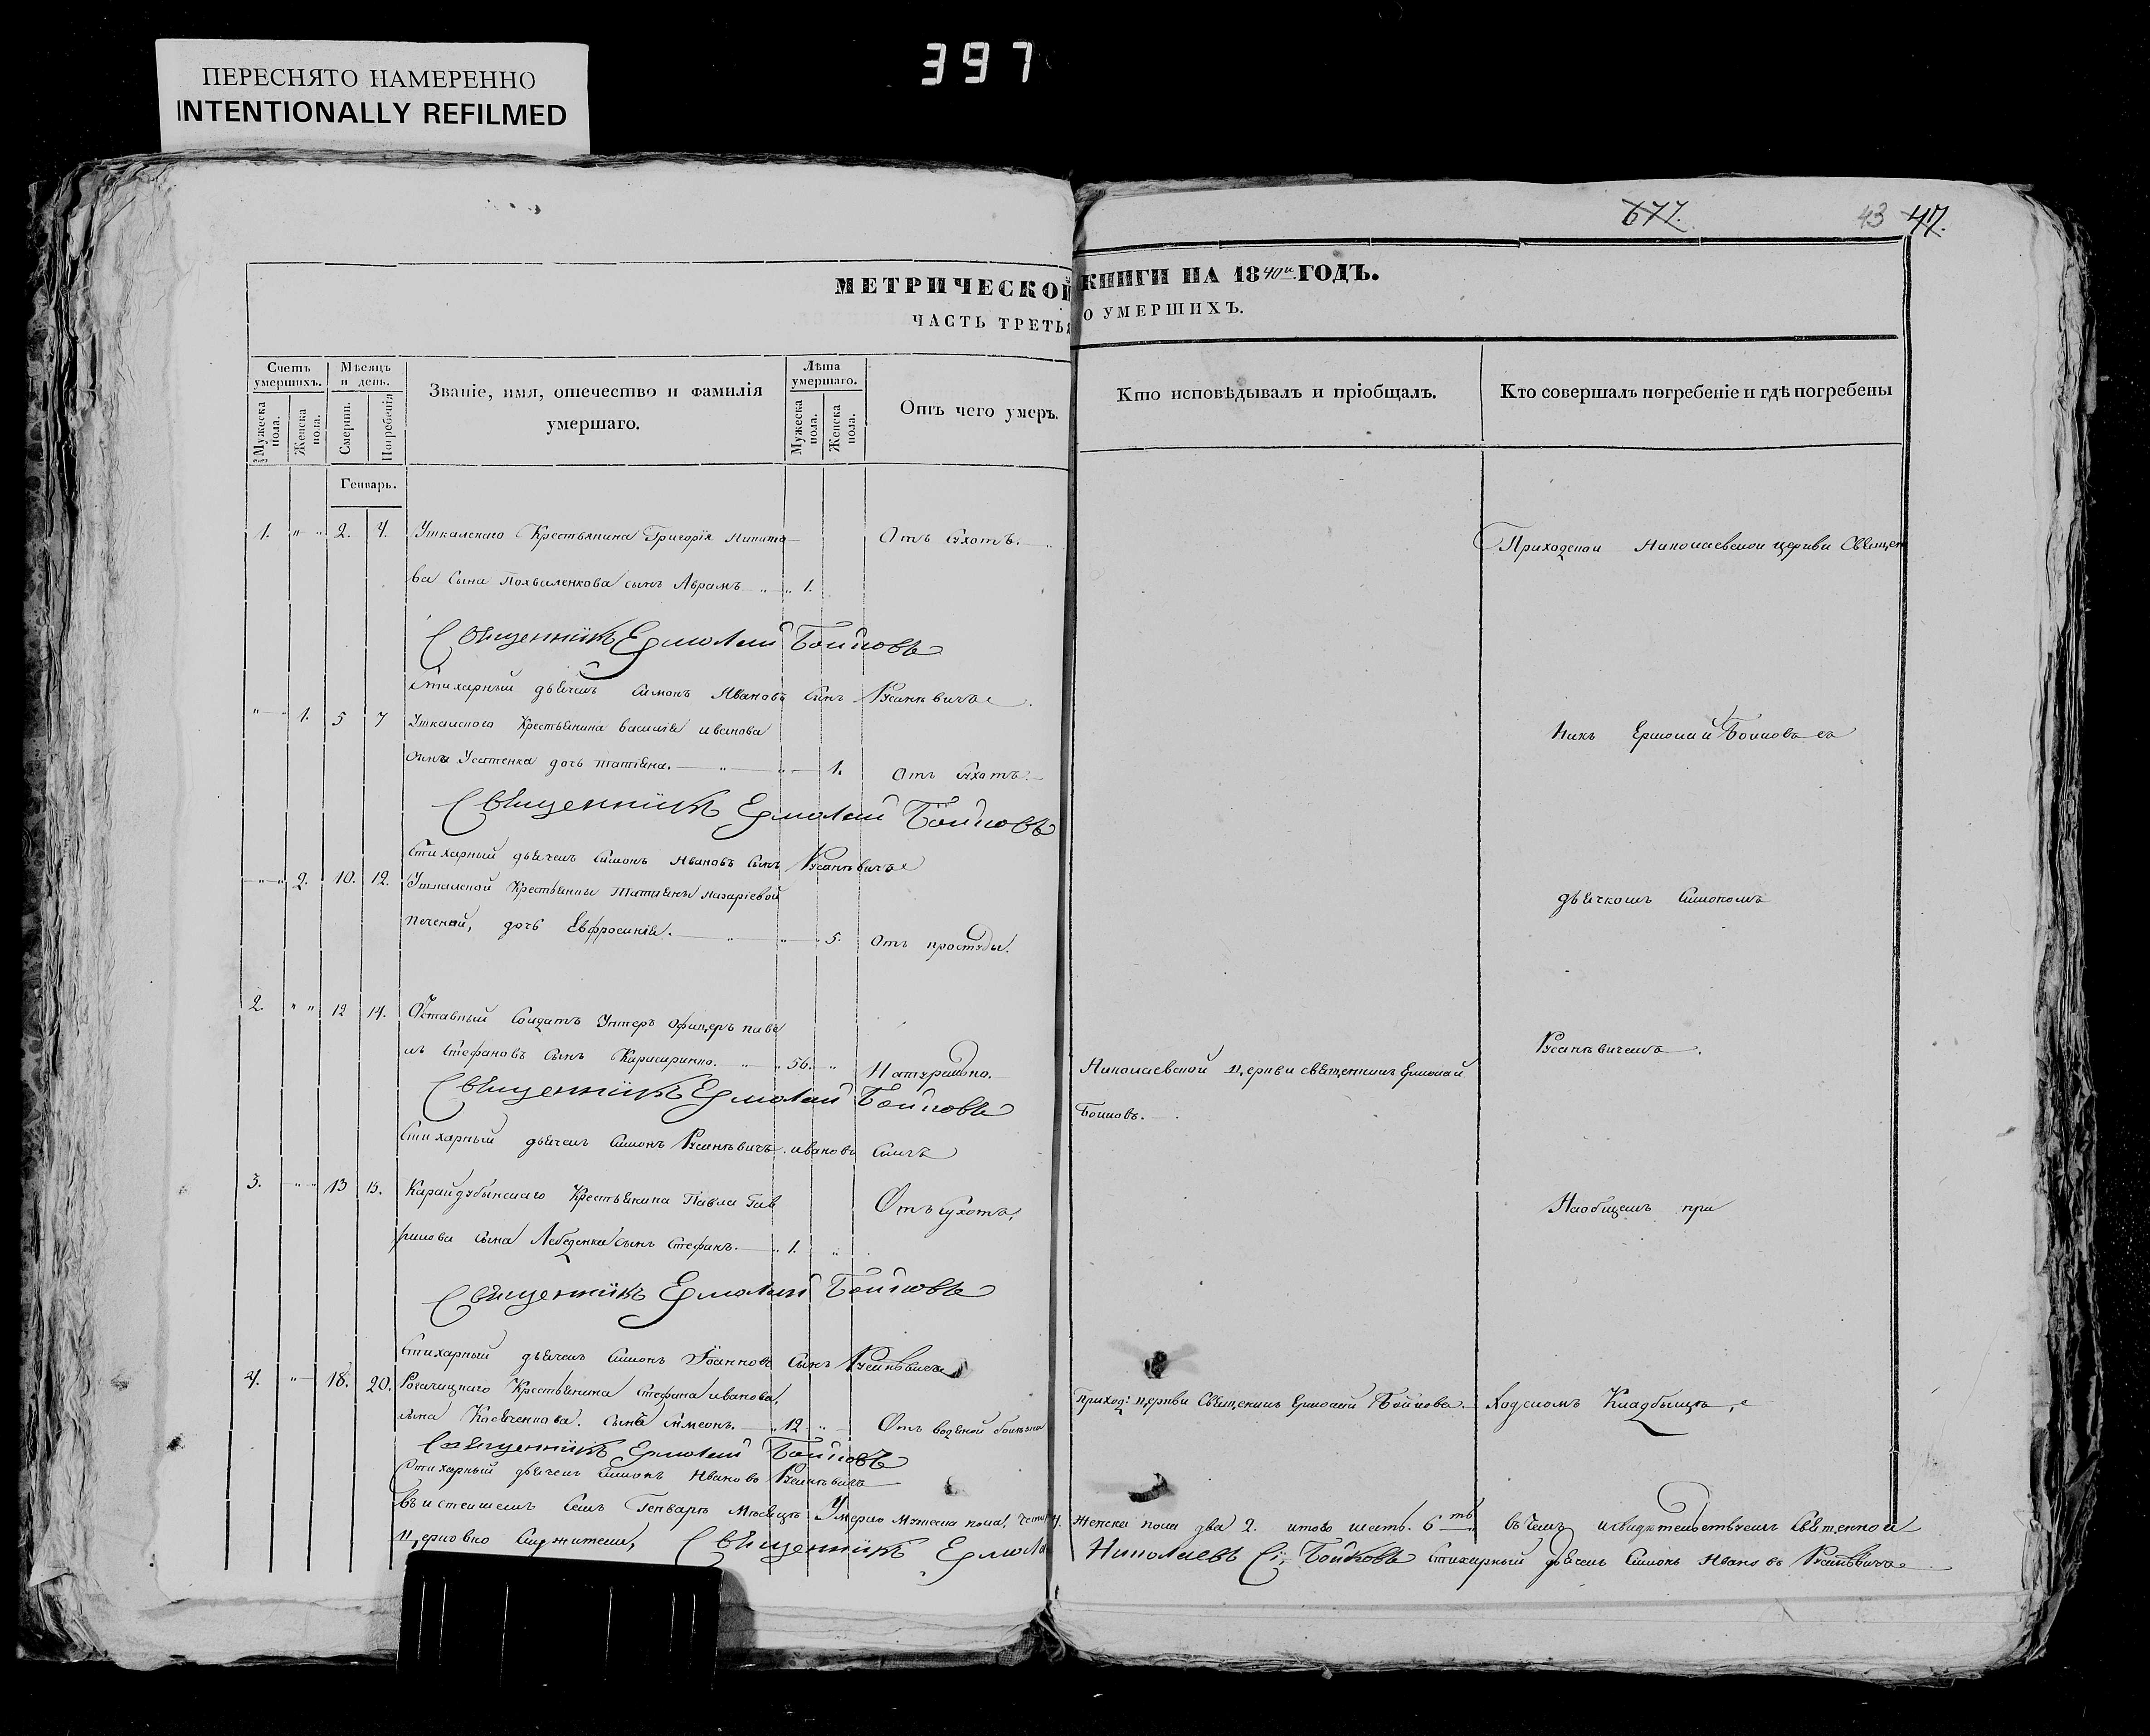 397
ПЕРЕСНЯТО НАМЕРЕННО
INTENTIONALLY REFILMED
677.
43 47.
МЕТРИЧЕСКОЙ КНИГИ НА 1840й ГОДЪ.
ЧАСТЬ ТРЕТЬЯ О УМЕРШИХЪ.
Счетъ умершихъ.
Мужеска пола.
Женска пола.
Мѣсяцъ и день.
Смерти.
Погребенія
Званіе, имя, отечество и фамилія
умершаго.
Лѣта умершаго.
Мужеска пола.
Женска пола.
Отъ чего умеръ.
Кто исповѣдывалъ и пріобщалъ.
Кто совершалъ погребеніе и гдѣ погребены
Генварь.
1. 2. 4. Ушкалскаго Крестьянина Григорія Никито
ва сына Похваленкова сынъ Аврамъ 1. Отъ сухотъ.
Священникъ Ермолай Бойковъ
Стихарный дьячекъ Симонъ Ивановъ сынъ
1. 5 7 Ушкалского Крестьянина василія иванова
сына Усатенка дочь татіяна. 1. Отъ сухотъ.
Священникъ Ермолай Бойковъ
Стихарный дьячекъ Симонъ Ивановъ сынъ
2. 10. 12. Ушкалской Крестьянки Татіяны назаріевой
Печеной, дочь Евфросинія. 5. Отъ простуды.
2. 12 14. Отставный Солдатъ Унтеръ Офицеръ паве
лъ Стефановъ Сынъ 56. Натурально.
Священникъ Ермолай Бойковъ
Стихарный дьячекъ Симонъ ивановъ сынъ
3. 13 15. Карайдубынскаго Крестьянина Павла Гав
рилова сына Лебеденка сынъ Стефанъ. 1. Отъ сухотъ,
Священникъ Ермолай Бойковъ
Стихарный дьячекъ Симонъ Іоанновъ Сынъ
4. 18. 20. Рогачицкаго Крестьянина Стефана иванова,
сына сынъ Симеонъ. 12 Отъ водяной болѣзни
Священникъ Ермолай Бойковъ
Стихарный дьячекъ Симонъ Ивановъ
Въ истекшемъ семъ Генварѣ Мѣсяцѣ Умерло Мужеска пола, 4. женска пола два 2. итого шесть. 6ть въ чемъ и свидѣтельствуемъ Священной
церковно Служители, Священникъ Ермола Николаевъ Бойковъ Стихарный дьячекъ Симонъ Ивановъ
Николаевской церкви священникъ Ермолай
Бойковъ.
Приход: церкви Священникъ Ермолай Бойковъ.
Приходской Николаевской церкви Священ
никъ Ермолай Бойковъ съ
дьячкомъ Симономъ
Наобщемъ при
ходскомъ Кладбыщѣ,